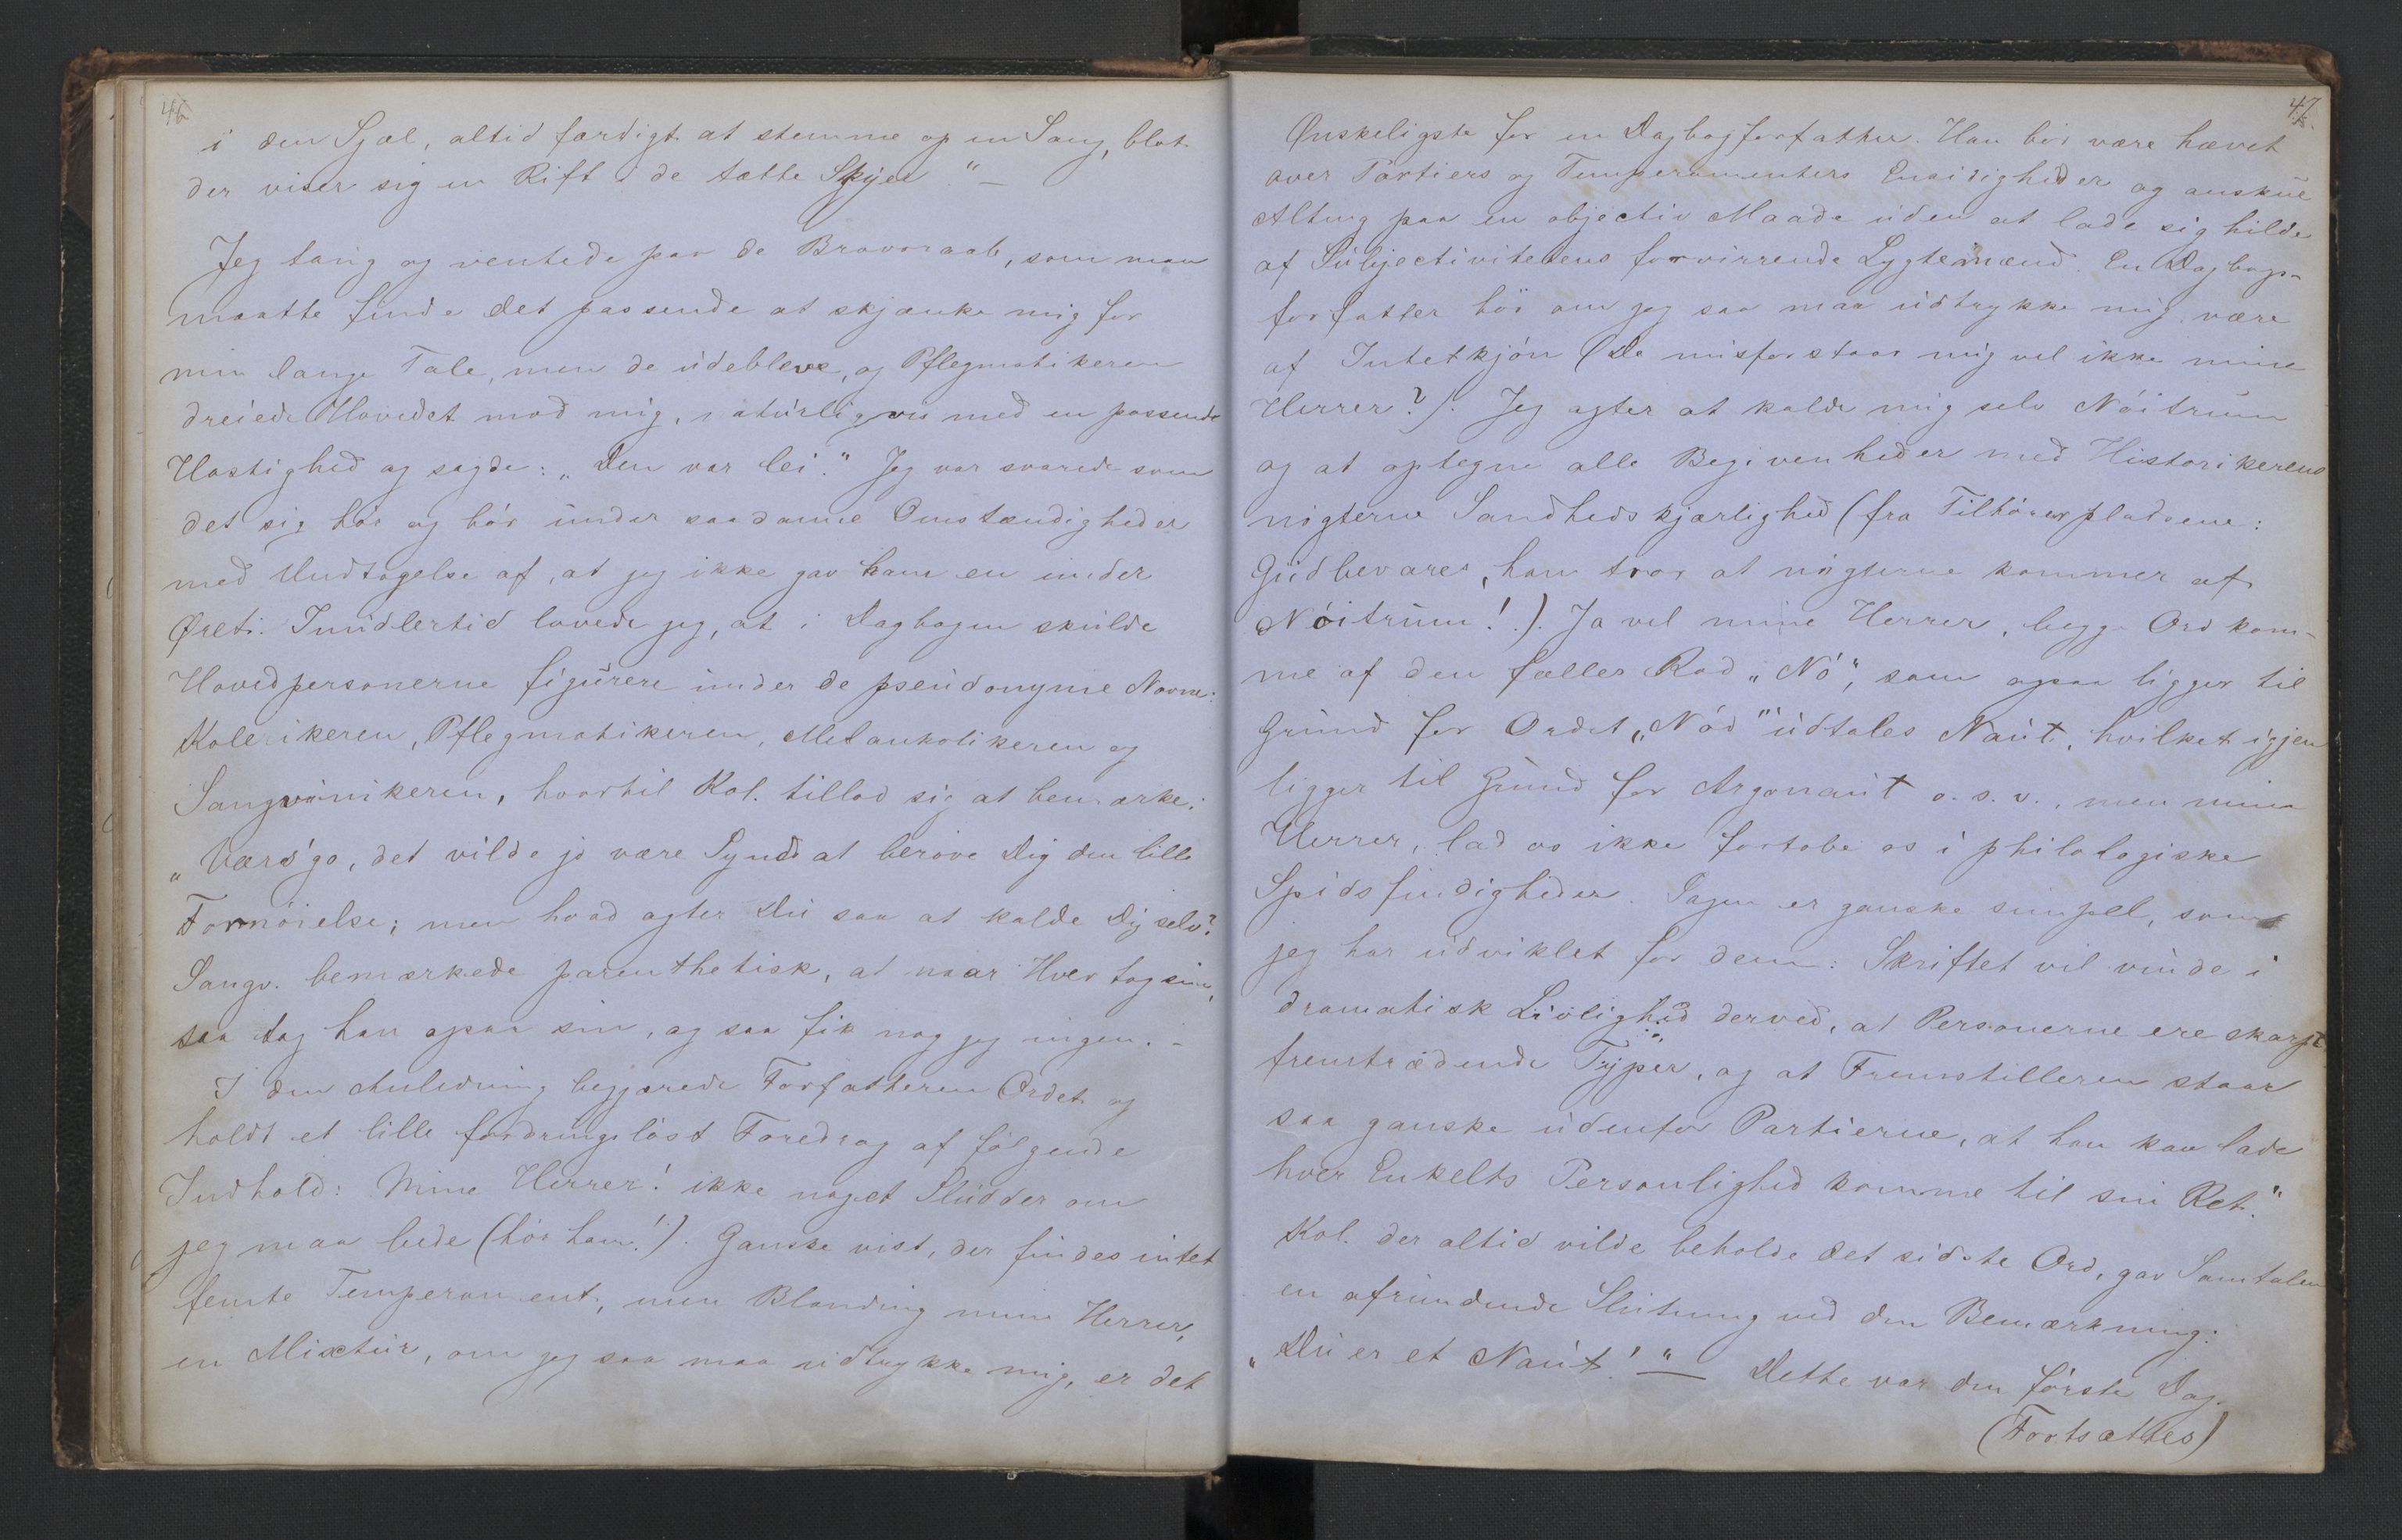 46
i den Sjæl, altid færdigt at stemme op en Sang, blot
der viser sig en Rift i de tætte Skyer." —
Jeg taug og ventede paa de Bravoraab, som man
maatte finde det passende at skjænke mig for
min lange Tale, men de udebleve, og Pflegmatikeren
dreiede Hovedet mod mig, naturligvis med en passende
Hastighed og sagde: „Den var lei." Jeg var svarede som
det sig hör og bör under saadanne Omstændigheder
med Undtagelse af, at jeg ikke gav ham en under
Øret. Imidlertid lovede jeg, at i Dagbogen skulde
Hovedpersonerne figurere under de pseudonyme Navne:
Kolerikeren, Pflegmatikeren, Melankolikeren og
Sangvinikeren, hvortil Kol. tillod sig at bemærke:
„Værs'go, det vilde jo være Synd at beröve Dig den lille
Fornöielse; men hvad agter Du saa at kalde Dig selv?
Sangv. bemærkede parenthetisk, at naar Hver tog sin,
saa tog han ogsaa sin, og saa fik nog jeg ingen. -
I den Anledning begjærede Forfatteren Ordet og
holdt et lille fordringslöst Foredrag af fölgende
Indhold: Mine Herrer! ikke noget Sludder om
jeg maa bede (hör ham!). Ganske vist, der findes intet
femte Temperament, men Blanding mine Herrer,
en Mixtur, om jeg saa maa udtrykke mig, er det
47.
Ønskeligste for en Dagbogforfatter. Han bör være hævet
over Partiers og Temperamenters Ensidigheder og anskue
Alting paa en objectiv Maade uden at lade sig hilde
af Subjectivitetens forvirrende Lygtemænd. En Dagbogs-
forfatter bör om jeg saa maa udtrykke mig være
af Intetkjön (De misforstaar mig vel ikke mine
Herrer?). Jeg agter at kalde mig selv Nöitrum
og at optegne alle Begivenheder med Historikerens
nögterne Sandhedskjærlighed (fra Tilhörerpladsene:
Gudbevares, han tror at nögterne kommer af
Nöitrum!). Ja vel mine Herrer, begge Ord kom-
me af den fælles Rod „Nö", som ogsaa ligger til
Grund for Ordet „Nöd" udtales Naut, hvilket igjen
ligger til Grund for Argonaut o. s. v., men mine
Herrer, lad os ikke fortabe os i philologiske
Spidsfindigheder. Sagen er ganske simpel, som
jeg har udviklet for dem: Skriftet vil vinde i
dramatisk Livlighed derved, at Personerne ere skarpt
fremtrædende Typer, og at Fremstilleren staar
saa ganske udenfor Partierne, at han kan lade
hver Enkelts Personlighed komme til sin Ret."
Kol. der altid vilde beholde det sidste Ord, gav Samtalen
en afrundende Slutning ved den Bemærkning:
„Du er et Naut!" — Dette var den förste Dag.
(Fortsættes)